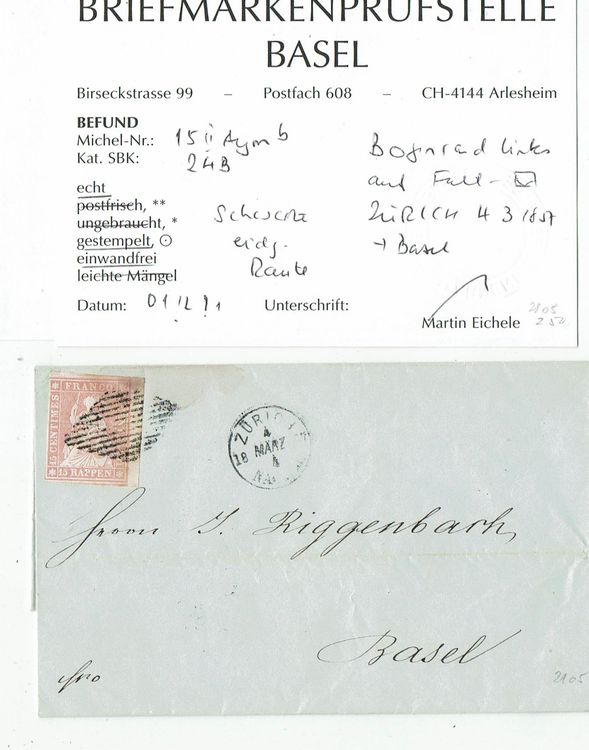 BRIEFMARKENPRÜFSTELLE
BASEL
Birseckstrasse 99 – Postfach 608 – CH-4144 Arlesheim
BEFUND
Michel-Nr.: 15 II Aym b
Kat. SBK: 24B
echt
postfrisch, **
ungebraucht, *
gestempelt, ⊙
einwandfrei
leichte Mängel
Schwarze
eidg.
Raute
Bogenrand links
auf Falt-
ZÜRICH 4 3 1857
→ Basel
Datum: 01 12 Unterschrift:
Martin Eichele
2105
250
FRANCO
15 CENTIMES
15 RAPPEN
ZÜRICH
4
18 MÄRZ
4
Herrn J. Riggenbach,
Basel
fro
2105